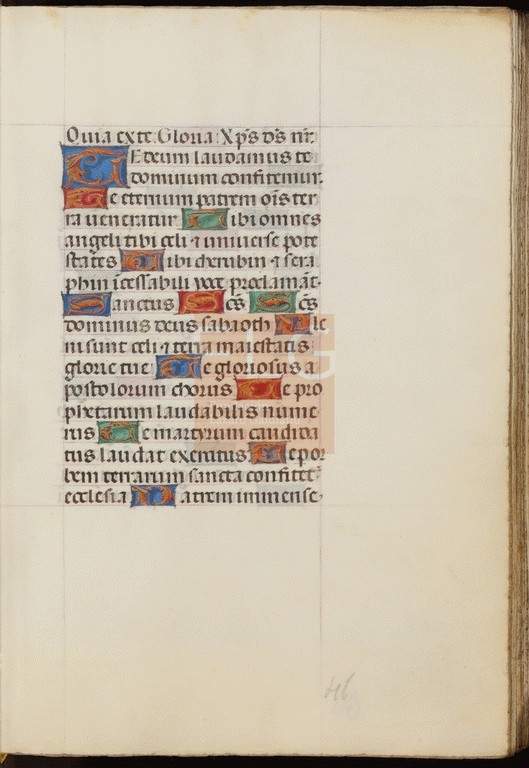 Quia ex te. Gloria. Xp̄s dn̄s nr̄.
TE deum laudamus te
dominum confitemur.
Te eternum patrem oīs ter
ra ueneratur Tibi omnes
angeli tibi celi ⁊ uniuerse pote
states Tibi cherubin ⁊ sera
phin īcessabili uoce proclamāt.
Sanctus Scs̄ Scs̄
dominus deus sabaoth Ple
ni sunt celi ⁊ terra maiestatis
glorie tue Te gloriosus a
postolorum chorus Te pro
phetarum laudabilis nume
rus Te martyrum candida
tus laudat exercitus Te per or
bem terrarum sancta confitet᷑
ecclesia Patrem immense
46